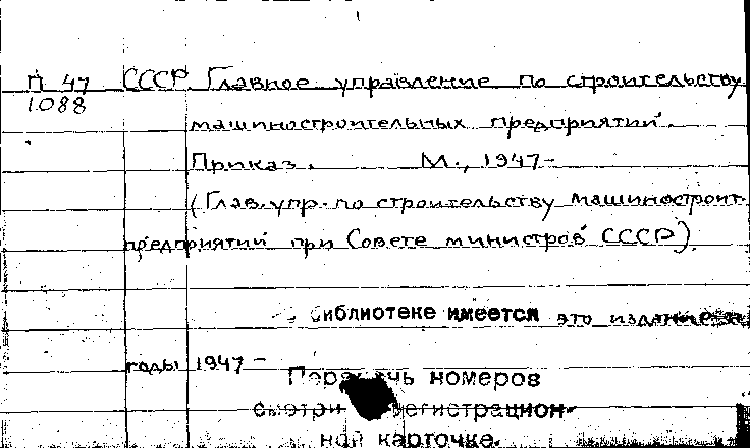 П 47 СССР. Главное управление по строительству
1088
машиностроительных предприятий.
Приказ. М., 1947-
(Глав. упр. по строительству машиностроит.
предприятий при Совете министров СССР).
библиотеке имеется это издание за
годы 1947-
Перечень номеров
смотри регистрацион-
ной карточке.